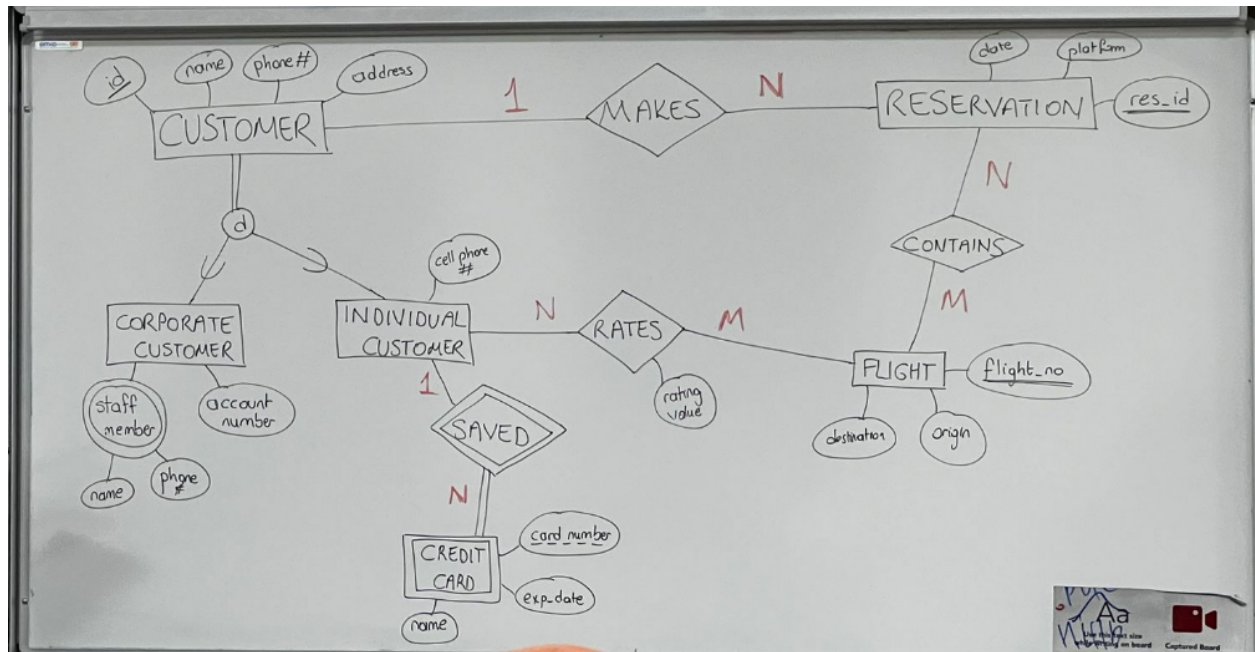 id
name
phone#
address
CUSTOMER
1
MAKES
N
date
platform
RESERVATION
res_id
d
N
CONTAINS
M
cell phone
#
CORPORATE
CUSTOMER
INDIVIDUAL
CUSTOMER
N
RATES
M
rating
value
FLIGHT
flight_no
destination
origin
staff
member
account
number
name
phone
#
1
SAVED
N
CREDIT
CARD
card_number
exp_date
name
Aa
Captured Board